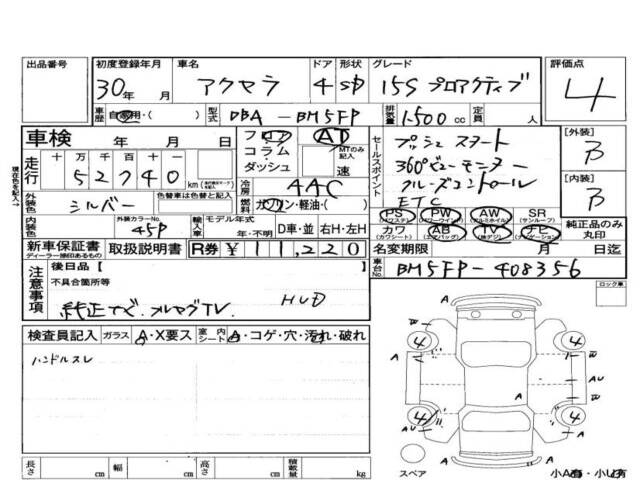 出品番号 初度登録年月 車名 ドア 形状 グレード 評価点
30年 月 アクセラ 4 SD 15S プロアクティブ 4
車歴 自家用・( ) 型式 DBA-BM5FP 排気量 1500cc 定員 人
車検 年 月 日 フロア AT セールスポイント プッシュスタート [外装]
コラム MTのみ記入 360°ビューモニター B
ダッシュ 速 クルーズコントロール
走行 十万千百十一 52740 km ETC [内装]
冷房 AAC B
外装色 シルバー 色替車は色替前色 燃料 ガソリン・軽油・( )
PS PW AW SR
(パワステ) (パワーウインド) (アルミホイル) (サンルーフ)
内装色 外装カラーNo. 45P 輸入車 モデル年式 年・不明 D車・並 右H・左H カワ AB TV ナビ 純正品のみ丸印
(カワシート) (エアバッグ) (純テレビ) (ナビゲーション)
新車保証書 取扱説明書 R券 ¥11,220 名変期限 月 日迄
ディーラー捺印あるもの
現在色を記入
注意事項 後日品[ ] 車台No. BM5FP-408356
不具合箇所等 ロック車
純正ナビ・フルセグTV HUD
検査員記入 ガラス A・X要ス 室内シート A・コゲ・穴・汚れ・破れ
ハンドルスレ
A W 4 4 W A
AU
A A AU
A 4 4 A
A W
スペア A 小A有・小U有
長さ cm 幅 cm 高さ cm 積載量 kg